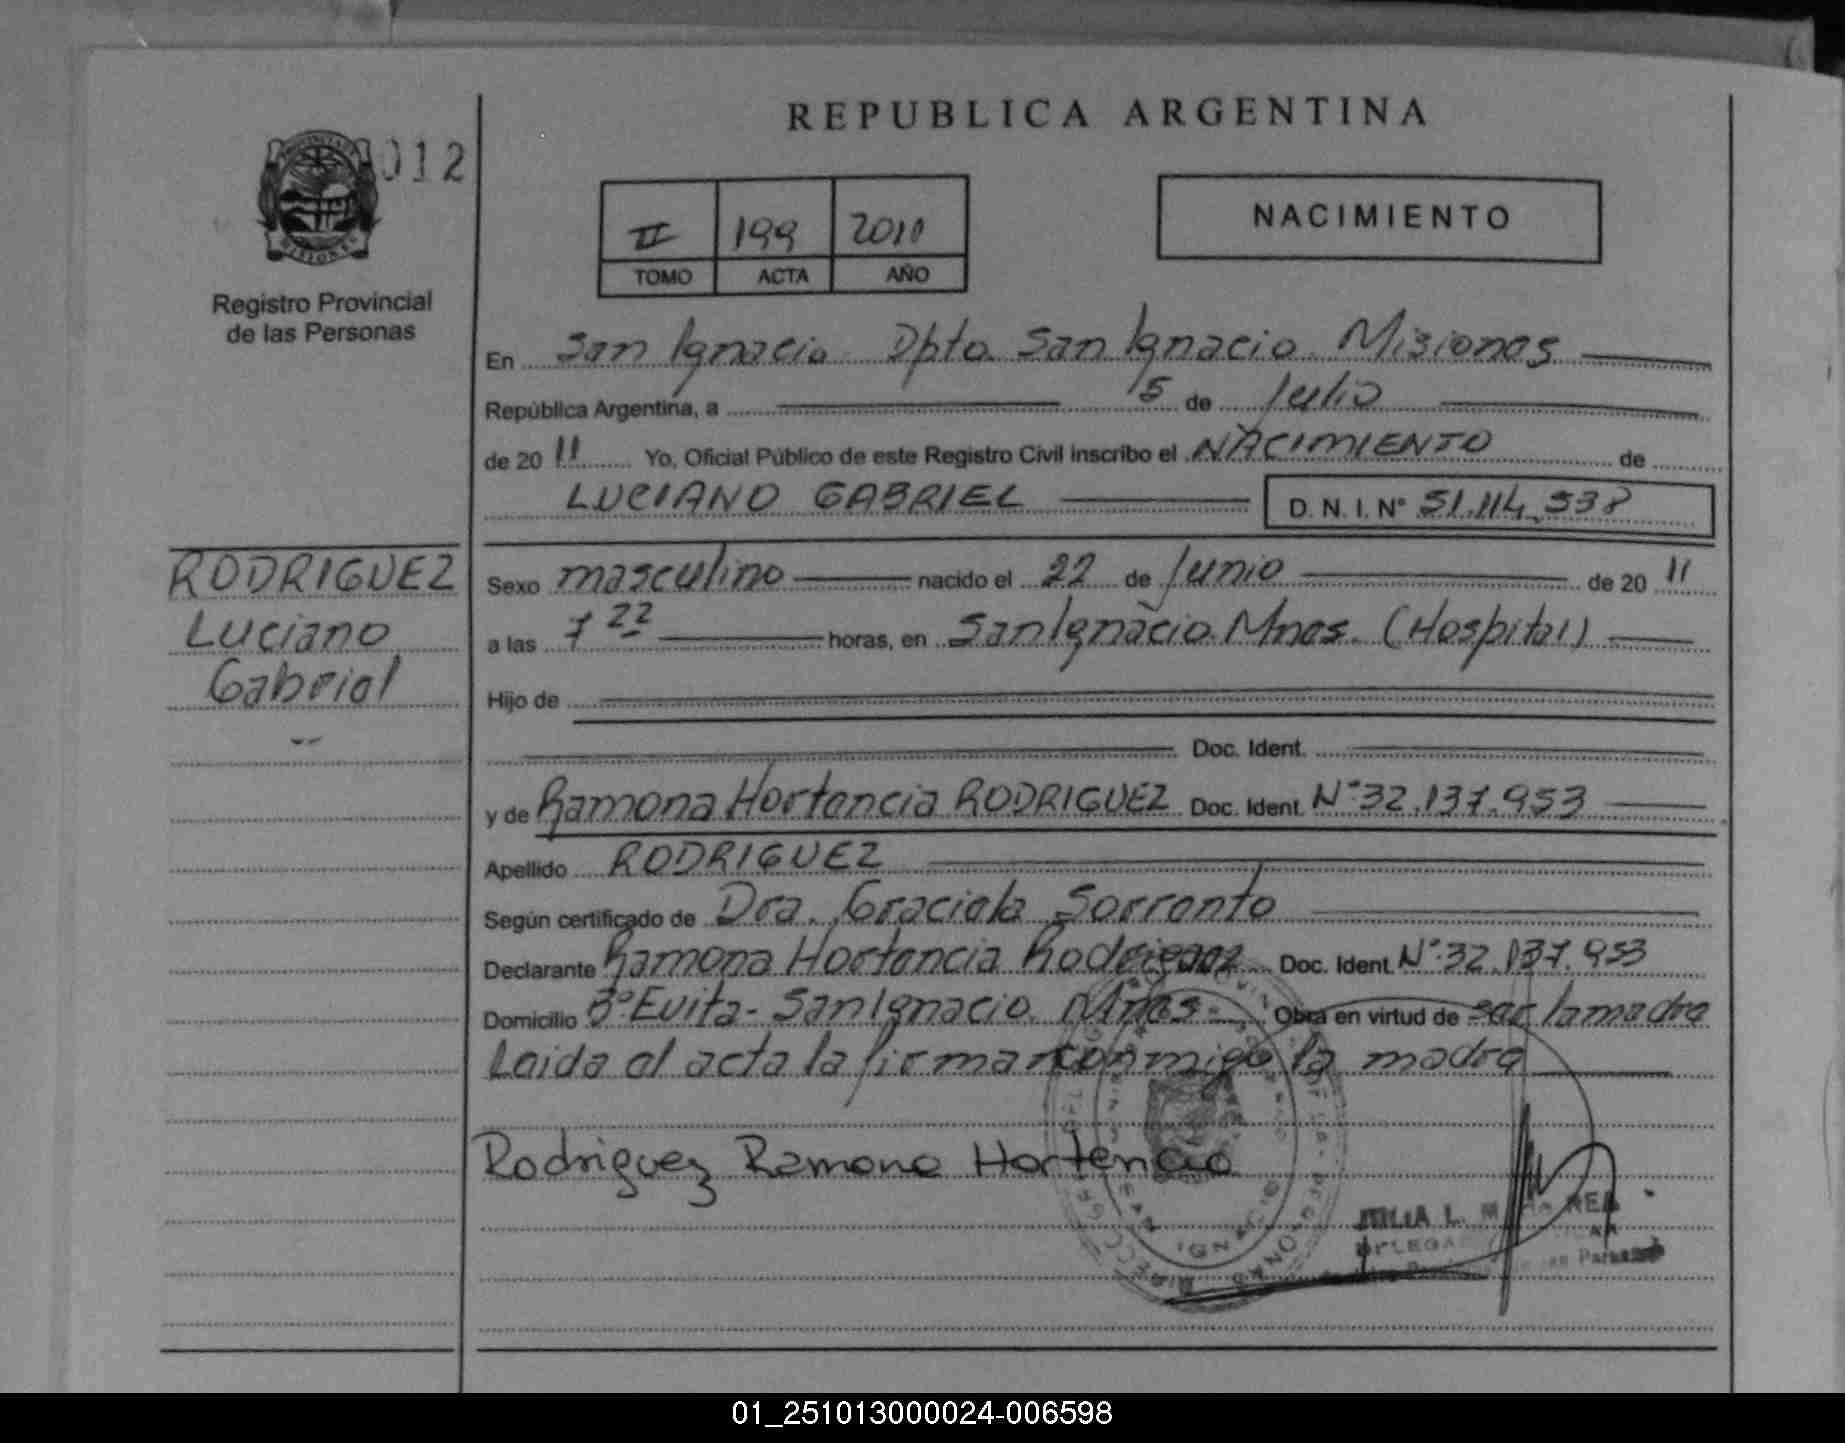 REPUBLICA ARGENTINA
012
NACIMIENTO
II 199 2011
TOMO ACTA AÑO
Registro Provincial
de las Personas
En San Ignacio Dpto San Ignacio Misiones
República Argentina, a 5 de Julio
de 20 11 Yo, Oficial Público de este Registro Civil inscribo el NACIMIENTO de
LUCIANO GABRIEL D. N. I. N° 51.114.538
RODRIGUEZ
Luciano
Gabriel
Sexo masculino nacido el 22 de Junio de 20 11
a las 7 22 horas, en San Ignacio Mnes. (Hospital)
Hijo de
Doc. Ident.
y de Ramona Hortencia RODRIGUEZ Doc. Ident. N° 32.137.953
Apellido RODRIGUEZ
Según certificado de Dra. Graciela Sorrento
Declarante Ramona Hortencia Rodriguez Doc. Ident. N° 32.137.953
Domicilio B° Evita - San Ignacio Mnes - Obra en virtud de ser la madre
Leida el acta la firman conmigo la madre
Rodriguez Ramona Hortencia
SAN IGNACIO
JULIA L.
01_251013000024-006598